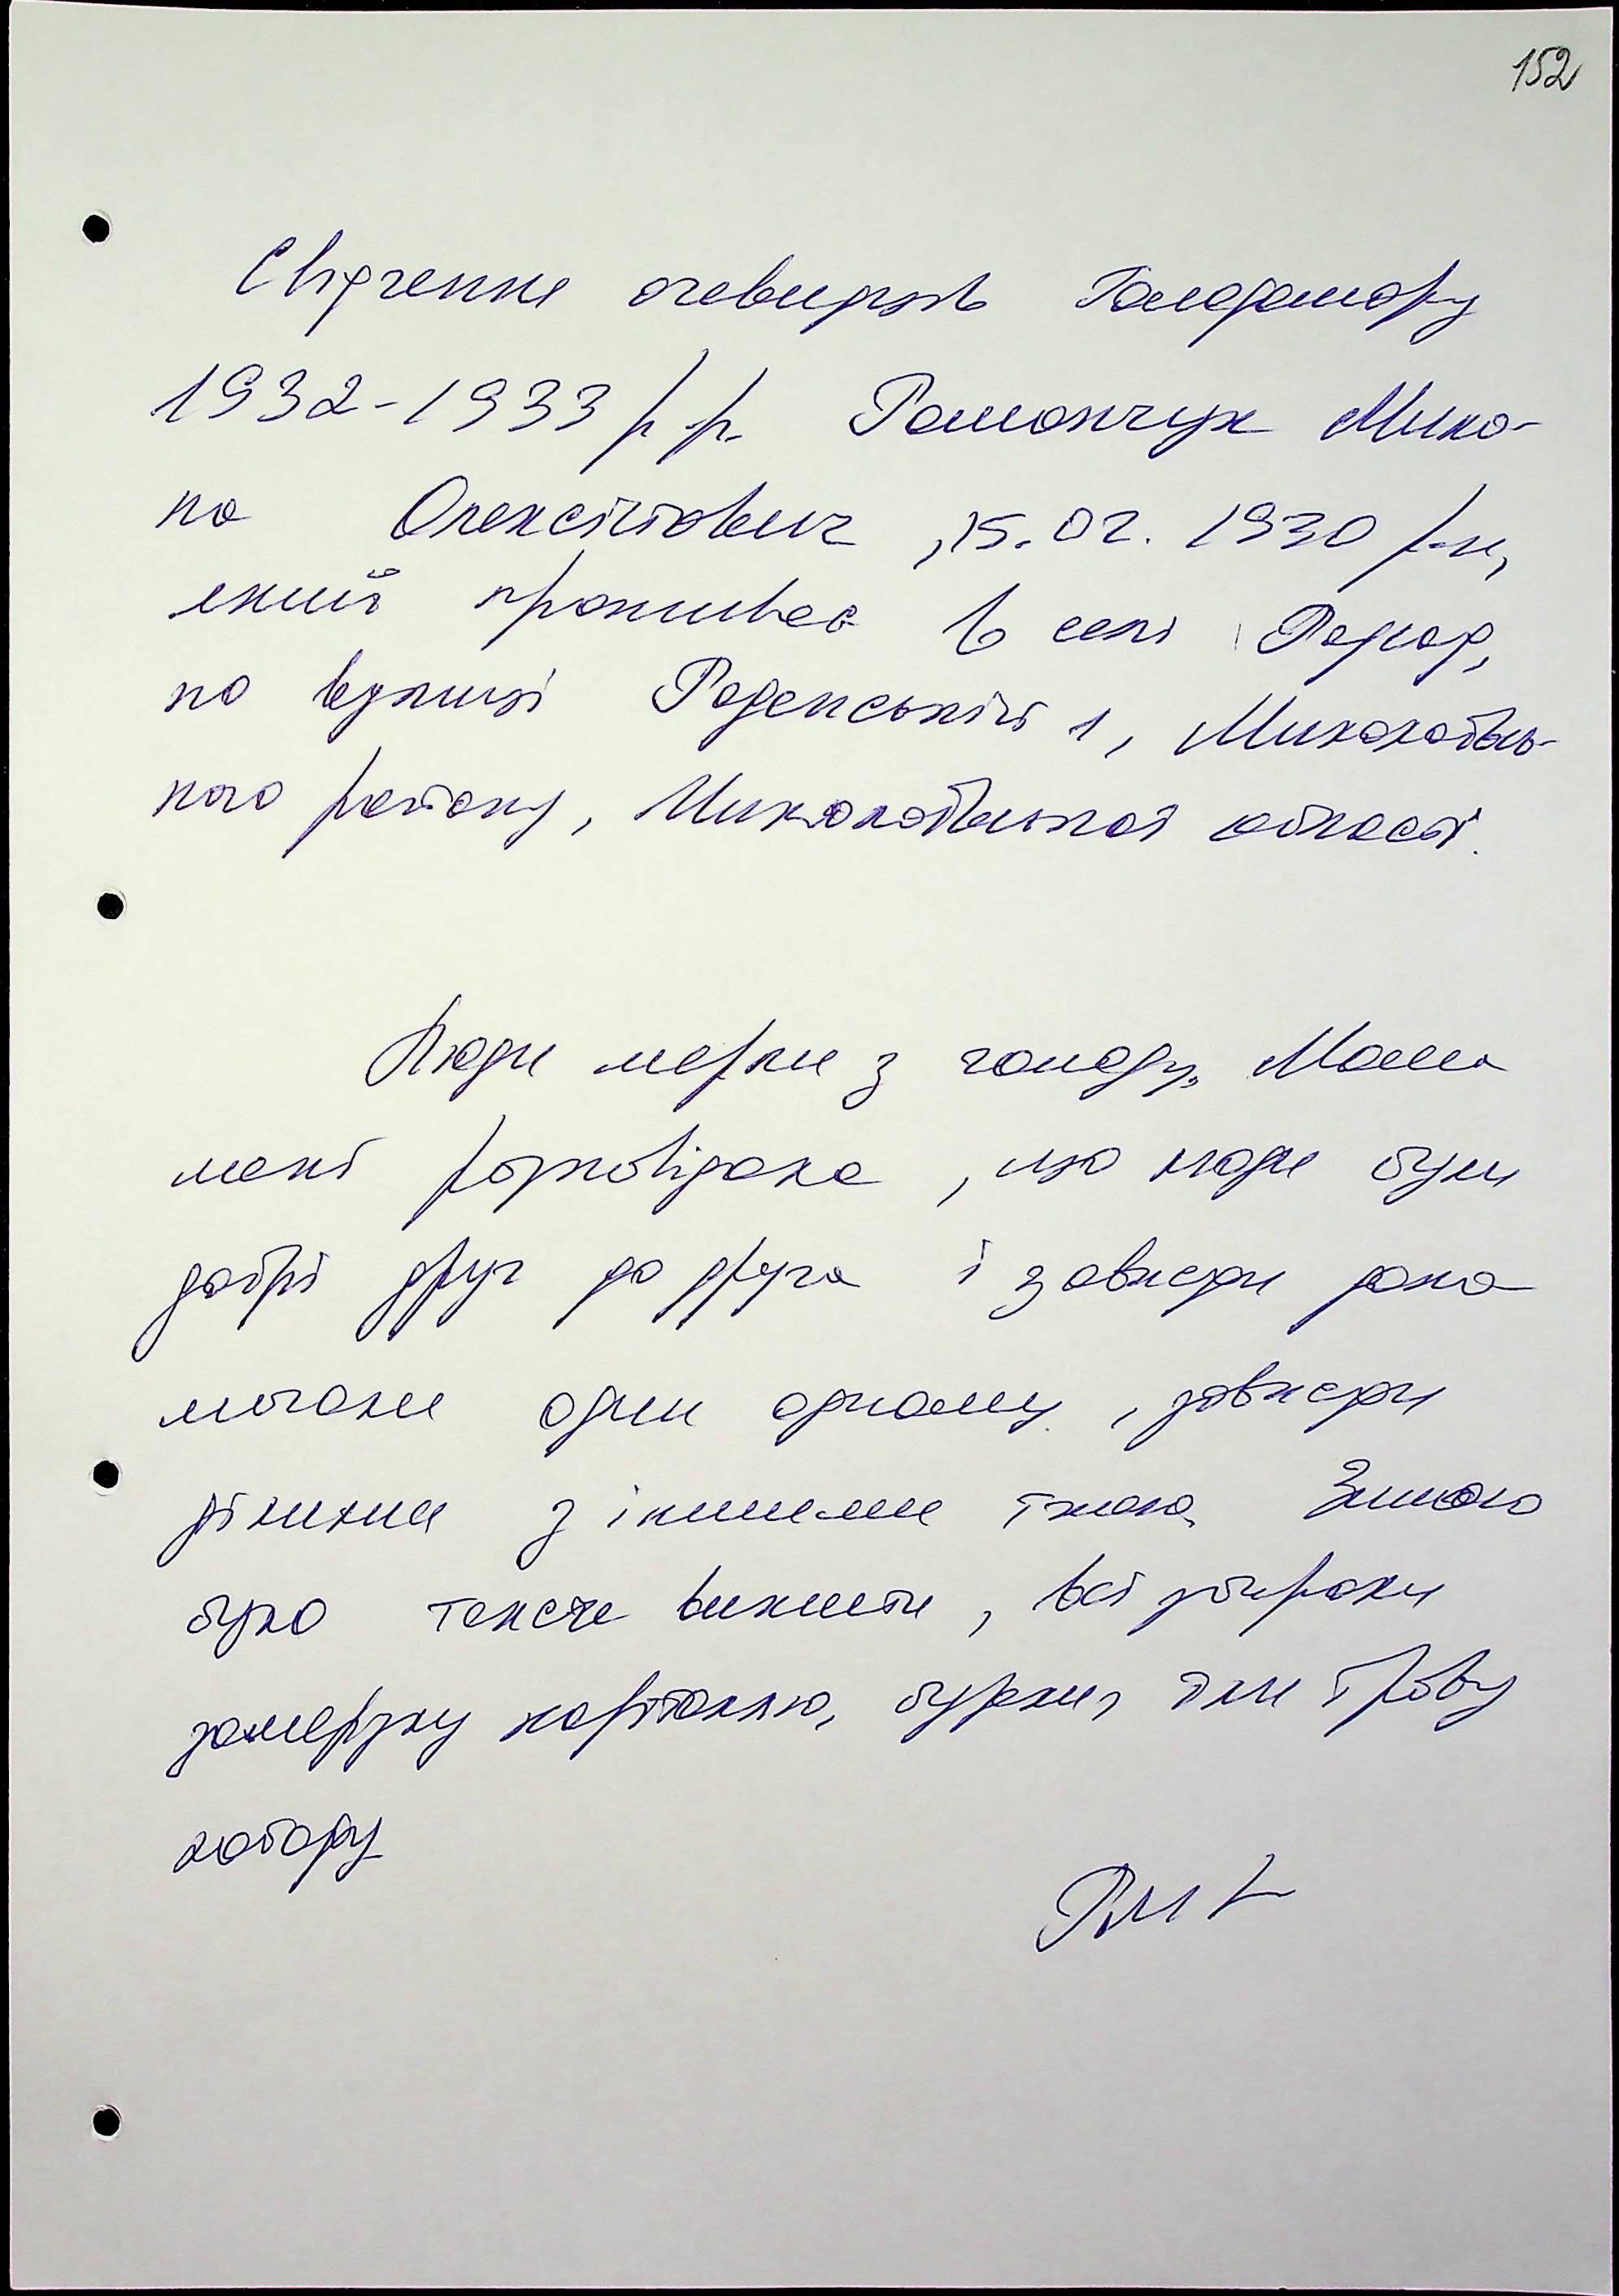 152
Свідчення очевидців Голодомору
1932-1933 р.р. Романчук Мико-
ла Олексійович, 15.02.1930 р.н,
який проживає в селі
по вулиці 1, Миколаївсь-
кого району, Миколаївської області.
Люди мерли з голоду. Мама
мені розповідала, що люди були
добрі друг до друга і завжди допо
могали один одному, завжди
ділились з іншими їжею. Зимою
було тяжче вижити, всі збирали
замерзлу картоплю, буряки, їли траву
лободу